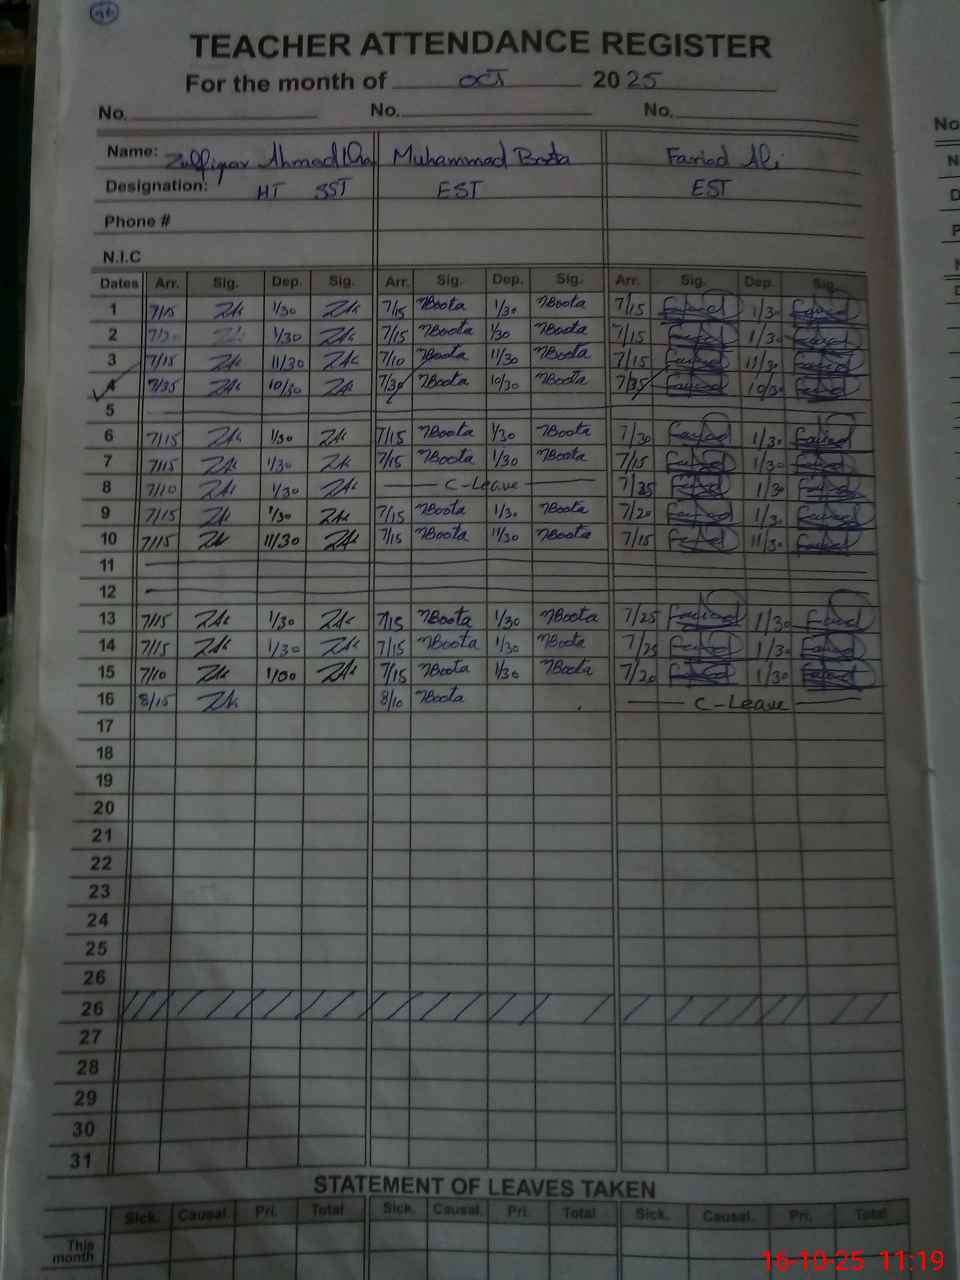 36
TEACHER ATTENDANCE REGISTER
For the month of OCT 2025
No. No. No.
Name: Zulfiqar Ahmad Muhammad Boota Fariad Ali
Designation: HT SST EST EST
Phone #
N.I.C
Dates Arr. Sig. Dep. Sig. Arr. Sig. Dep. Sig. Arr. Sig. Dep. Sig.
1 7/15 ZA 1/30 ZA 7/15 MBoota 1/30 MBoota 7/15 Fariad 1/30 Fariad
2 1/30 ZA 7/15 MBoota 1/30 MBoota 7/15 Fariad 1/30 Fariad
3 7/15 ZA 11/30 ZA 7/10 MBoota 11/30 MBoota 7/15 Fariad 11/30 Fariad
4 7/35 ZA 10/30 ZA 7/30 MBoota 10/30 MBoota 7/35 Fariad 10/30 Fariad
5
6 7/15 ZA 1/30 ZA 7/15 MBoota 1/30 MBoota 7/30 Fariad 1/30 Fariad
7 7/15 ZA 1/30 ZA 7/15 MBoota 1/30 MBoota 7/15 Fariad 1/30 Fariad
8 7/10 ZA 1/30 ZA C-Leave 7/35 Fariad 1/30 Fariad
9 7/15 ZA 1/30 ZA 7/15 MBoota 1/30 MBoota 7/20 Fariad 1/30 Fariad
10 7/15 ZA 11/30 ZA 7/15 MBoota 11/30 MBoota 7/15 Fariad 11/30 Fariad
11
12
13 7/15 ZA 1/30 ZA 7/15 MBoota 1/30 MBoota 7/25 Fariad 1/30 Fariad
14 7/15 ZA 1/30 ZA 7/15 MBoota 1/30 MBoota 7/25 Fariad 1/30 Fariad
15 7/10 ZA 1/00 ZA 7/15 MBoota 1/30 MBoota 7/20 Fariad 1/30 Fariad
16 8/15 ZA 8/10 MBoota C-Leave
17
18
19
20
21
22
23
24
25
26
26
27
28
29
30
31
STATEMENT OF LEAVES TAKEN
Sick. Causal. Pri. Total Sick. Causal. Pri. Total Sick. Causal. Pri. Total
This month
16-10-25 11:19